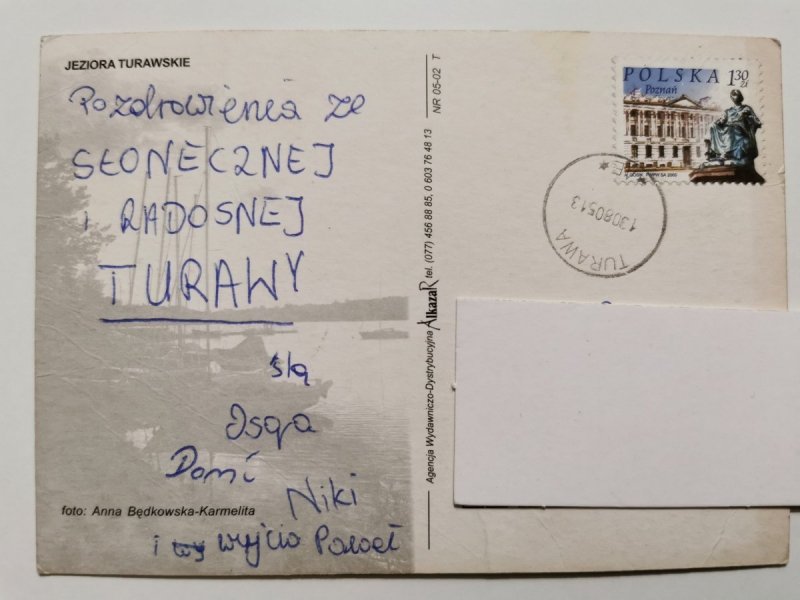 JEZIORA TURAWSKIE
Pozdrowienia ze
SŁONECZNEJ
i RADOSNEJ
TURAWY
ślą
Domi
Niki
foto: Anna Będkowska-Karmelita
i wujcio Paweł
NR 05-02 T
Agencja Wydawniczo-Dystrybucyjna AlkazaR tel. (077) 456 88 85, 0 603 76 48 13
POLSKA 1,30 zł
Poznań
PWPW SA 2005
TURAWA
13080513